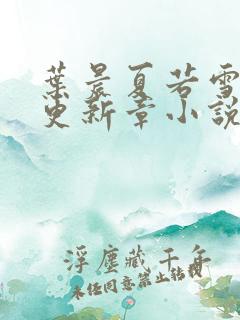 葉晨夏若雪
更新章小說
浮塵藏千舟
未经同意禁止转载